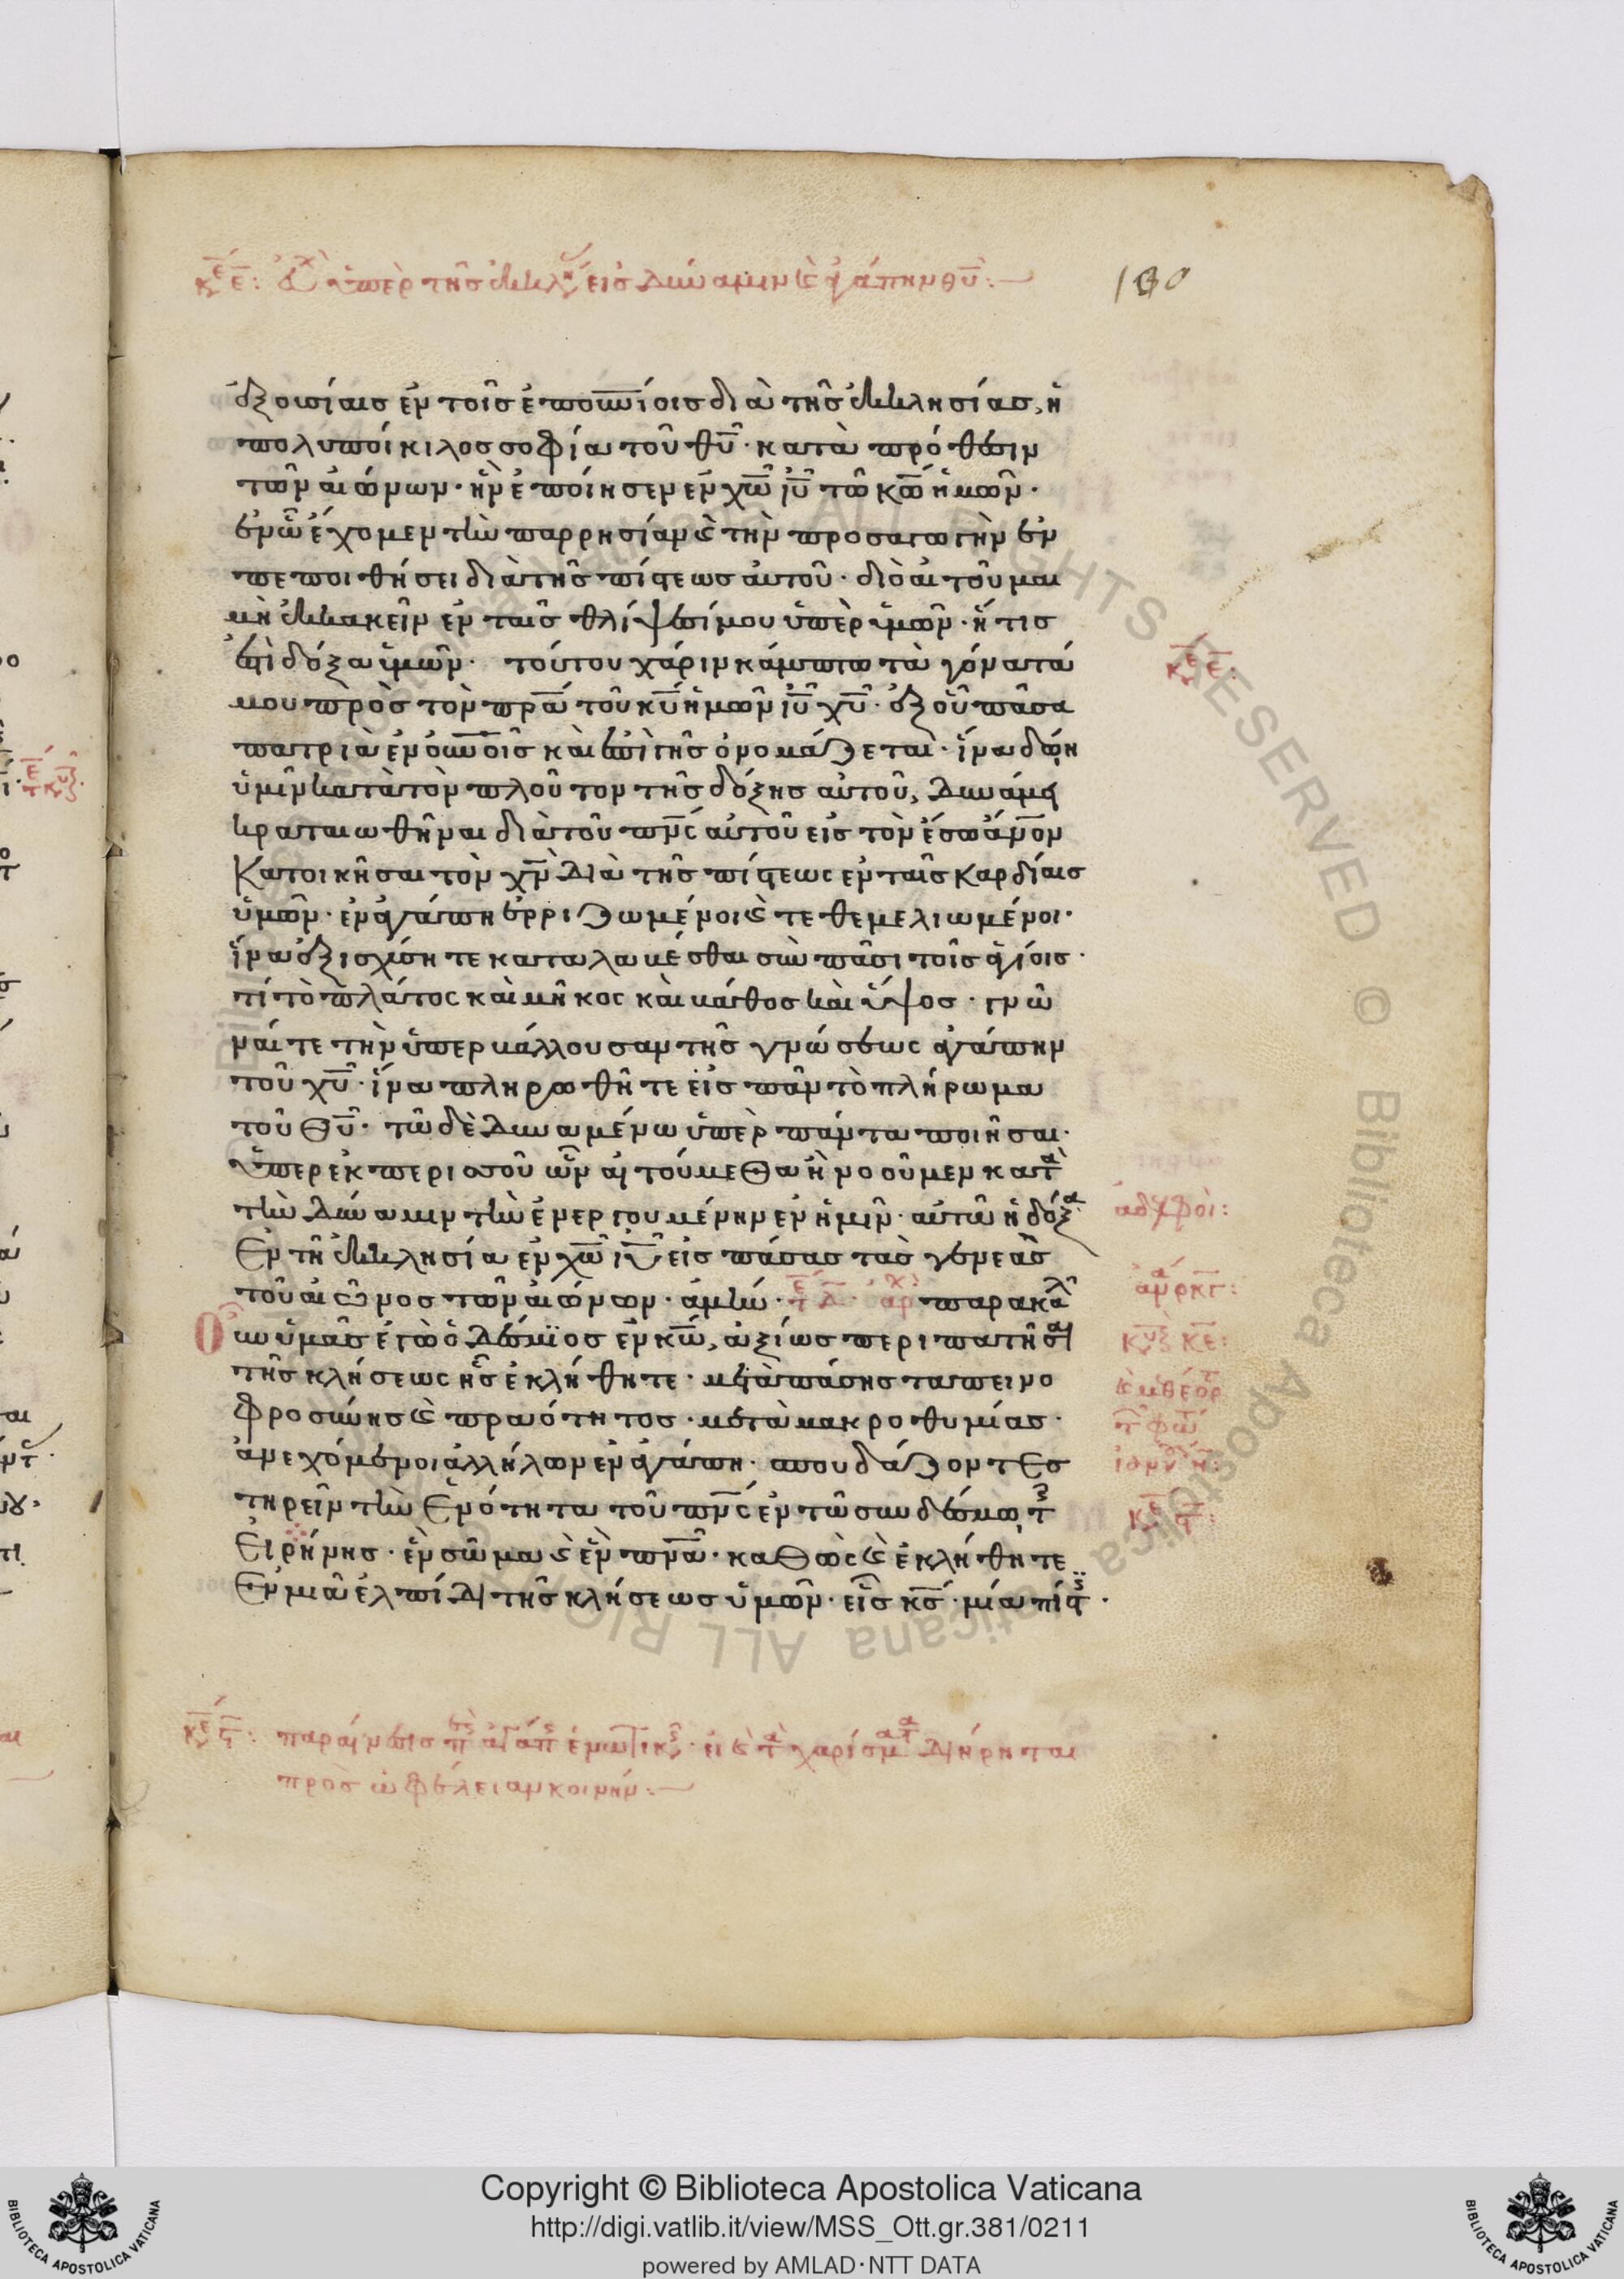 κε ε: ὑπὲρ τῆς ἐκκλη εἰς δύναμιν καὶ ἀγάπην θυ:
130
ἐξουσίαις ἐν τοῖς ἐπουνίοις διὰ τῆς ἐκκλησίας, ἡ
πολυποίκιλος σοφία τοῦ θυ· κατὰ πρόθεσιν
τῶν αἰώνων· ἣν ἐποίησεν ἐν χω ιυ τῶ κω ἡμῶν·
ἐν ὧ ἔχομεν τὴν παρρησίαν καὶ τὴν προσαγωγὴν ἐν
πεποιθήσει διὰ τῆς πίστεως αὐτοῦ· διὸ αἰτοῦμαι
μὴ ἐκκακεῖν ἐν ταῖς θλίψεσί μου ὑπὲρ ὑμῶν· ἥτις
ἐστὶ δόξα ὑμῶν· τούτου χάριν κάμπτω τὰ γόνατά
μου πρὸς τὸν πρα τοῦ κυ ἡμῶν ιυ χυ· ἐξ οὗ πᾶσα
πατριὰ ἐν ουνοις καὶ ἐπὶ γῆς ὀνομάζεται· ἵνα δώη
ὑμῖν κατὰ τὸν πλοῦτον τῆς δόξης αὐτοῦ, δυνάμει
κραταιωθῆναι διὰ τοῦ πνς αὐτοῦ εἰς τὸν ἔσω ανον
κατοικῆσαι τὸν χν διὰ τῆς πίστεως ἐν ταῖς καρδίαις
ὑμῶν· ἐν ἀγάπη ἐρριζωμένοι καὶ τεθεμελιωμένοι·
ἵνα ἐξισχύσητε καταλαβέσθαι σὺν πᾶσι τοῖς ἁγίοις·
τί τὸ πλάτος καὶ μῆκος καὶ βάθος καὶ ὕψος· γνῶ
ναί τε τὴν ὑπερβάλλουσαν τῆς γνώσεως ἀγάπην
τοῦ χυ· ἵνα πληρωθῆτε εἰς πᾶν τὸ πλήρωμα
τοῦ θυ· τῶ δὲ δυναμένω ὑπὲρ πάντα ποιῆσαι·
ὑπερεκπερισσοῦ ὧν αἰτούμεθα ἢ νοοῦμεν κατὰ
τὴν δύναμιν τὴν ἐνεργουμένην ἐν ἡμῖν· αὐτῶ ἡ δόξα
ἐν τῆ ἐκκλησία ἐν χω ιυ εἰς πάσας τὰς γενεὰς
τοῦ αἰῶνος τῶν αἰώνων· ἀμήν· τε λ αρχ παρακαλ
ῶ ὑμᾶς ἐγὼ ὁ δέσμιος ἐν κω, ἀξίως περιπατῆσαι
τῆς κλήσεως ἧς ἐκλήθητε· μετὰ πάσης ταπεινο
φροσύνης καὶ πραότητος· μετὰ μακροθυμίας·
ἀνεχόμενοι ἀλλήλων ἐν ἀγάπη· σπουδάζοντες
τηρεῖν τὴν ἑνότητα τοῦ πνς ἐν τῶ συνδέσμω τ
εἰρήνης· ἓν σῶμα καὶ ἓν πνα· καθὼς καὶ ἐκλήθητε
ἐν μιᾶ ἐλπίδι τῆς κλήσεως ὑμῶν· εἷς κς· μία πίστ·
κε ε:
ἀδελφοὶ:
κυ κε:
κε ς:
κε ς: παραίνεσις π ἀγάπ ἑνωτικ· εἰ καὶ τὰ χαρίσματα διήρηται
πρὸς ὠφέλειαν κοινήν:
Copyright © Biblioteca Apostolica Vaticana
http://digi.vatlib.it/view/MSS_Ott.gr.381/0211
powered by AMLAD·NTT DATA
BIBLIOTECA APOSTOLICA VATICANA
BIBLIOTECA APOSTOLICA VATICANA